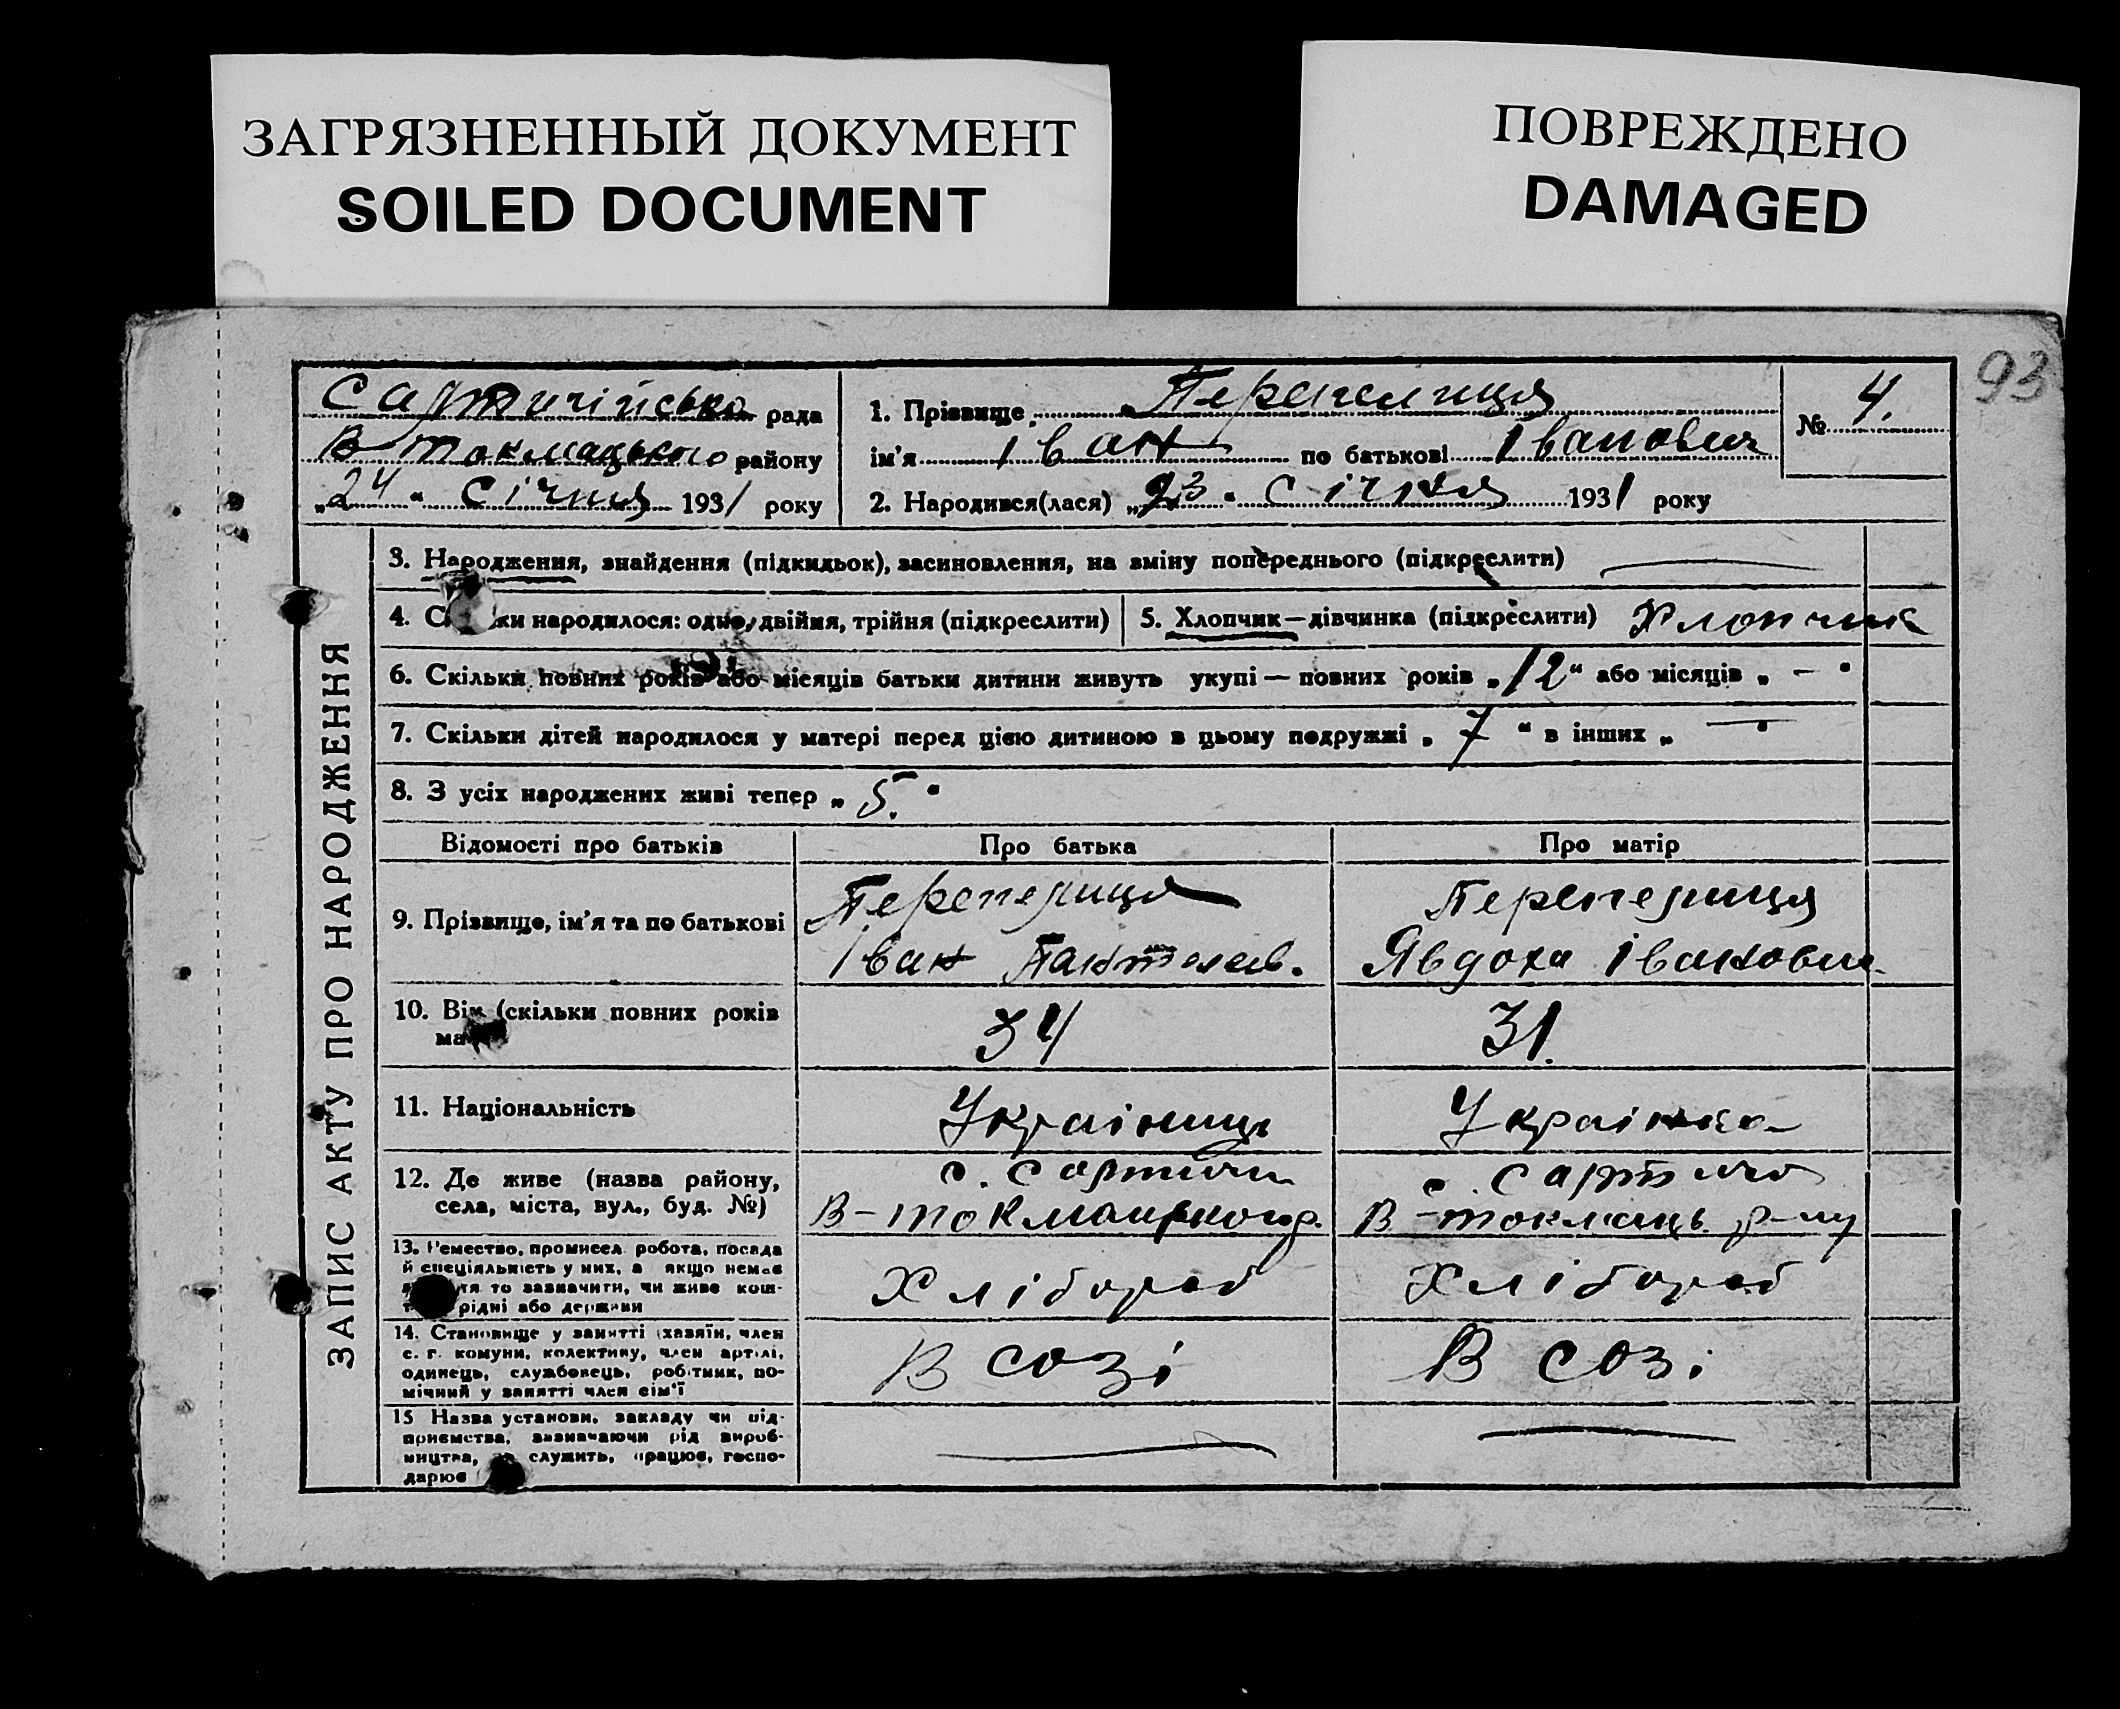 ЗАГРЯЗНЕННЫЙ ДОКУМЕНТ
SOILED DOCUMENT
ПОВРЕЖДЕНО
DAMAGED
93
рада
В токмацького району
„24“ січня 1931 року
1. Прізвище Перепелиця
ім'я Іван по батькові Іванович
2. Народився(лася) „23“ січня 1931 року
№ 4.
ЗАПИС АКТУ ПРО НАРОДЖЕННЯ
3. Народження, знайдення (підкидьок), засиновлення, на зміну попереднього (підкреслити)
4. народилося: одно, двійня, трійня (підкреслити)
5. Хлопчик—дівчинка (підкреслити) Хлопчик
6. Скільки повних років або місяців батьки дитини живуть укупі — повних років „12“ або місяців „ – “
7. Скільки дітей народилося у матері перед цією дитиною в цьому подружжі „ 7 “ в інших „ — “
8. З усіх народжених живі тепер „ 5. “
Відомості про батьків
Про батька
Про матір
9. Прізвище, ім'я та по батькові
Перепелиця
Іван Пантелеєв.
Перепелиця
Явдоха Іванович
10. Вік (скільки повних років
34
31.
11. Національність
Українець
Українка
12. Де живе (назва району,
села, міста, вул., буд. №)
с.
В-токмацького р.
с.
В-токмаць. р-ну
13. Ремество, промисел робота, посада
й спеціяльність у них, а якщо немає
то зазначити, чи живе кош-
рідні або держави
Хлібороб
Хлібороб
14. Становище у занятті (хазяїн, член
с. г. комуни, колективу, член артілі,
одинець, службовець, робітник, по-
мічний у занятті член сім'ї
В созі
В созі
15 Назва установи, закладу чи під-
приємства, визначаючи рід вироб-
ництва, служить, працює, госпо-
дарює